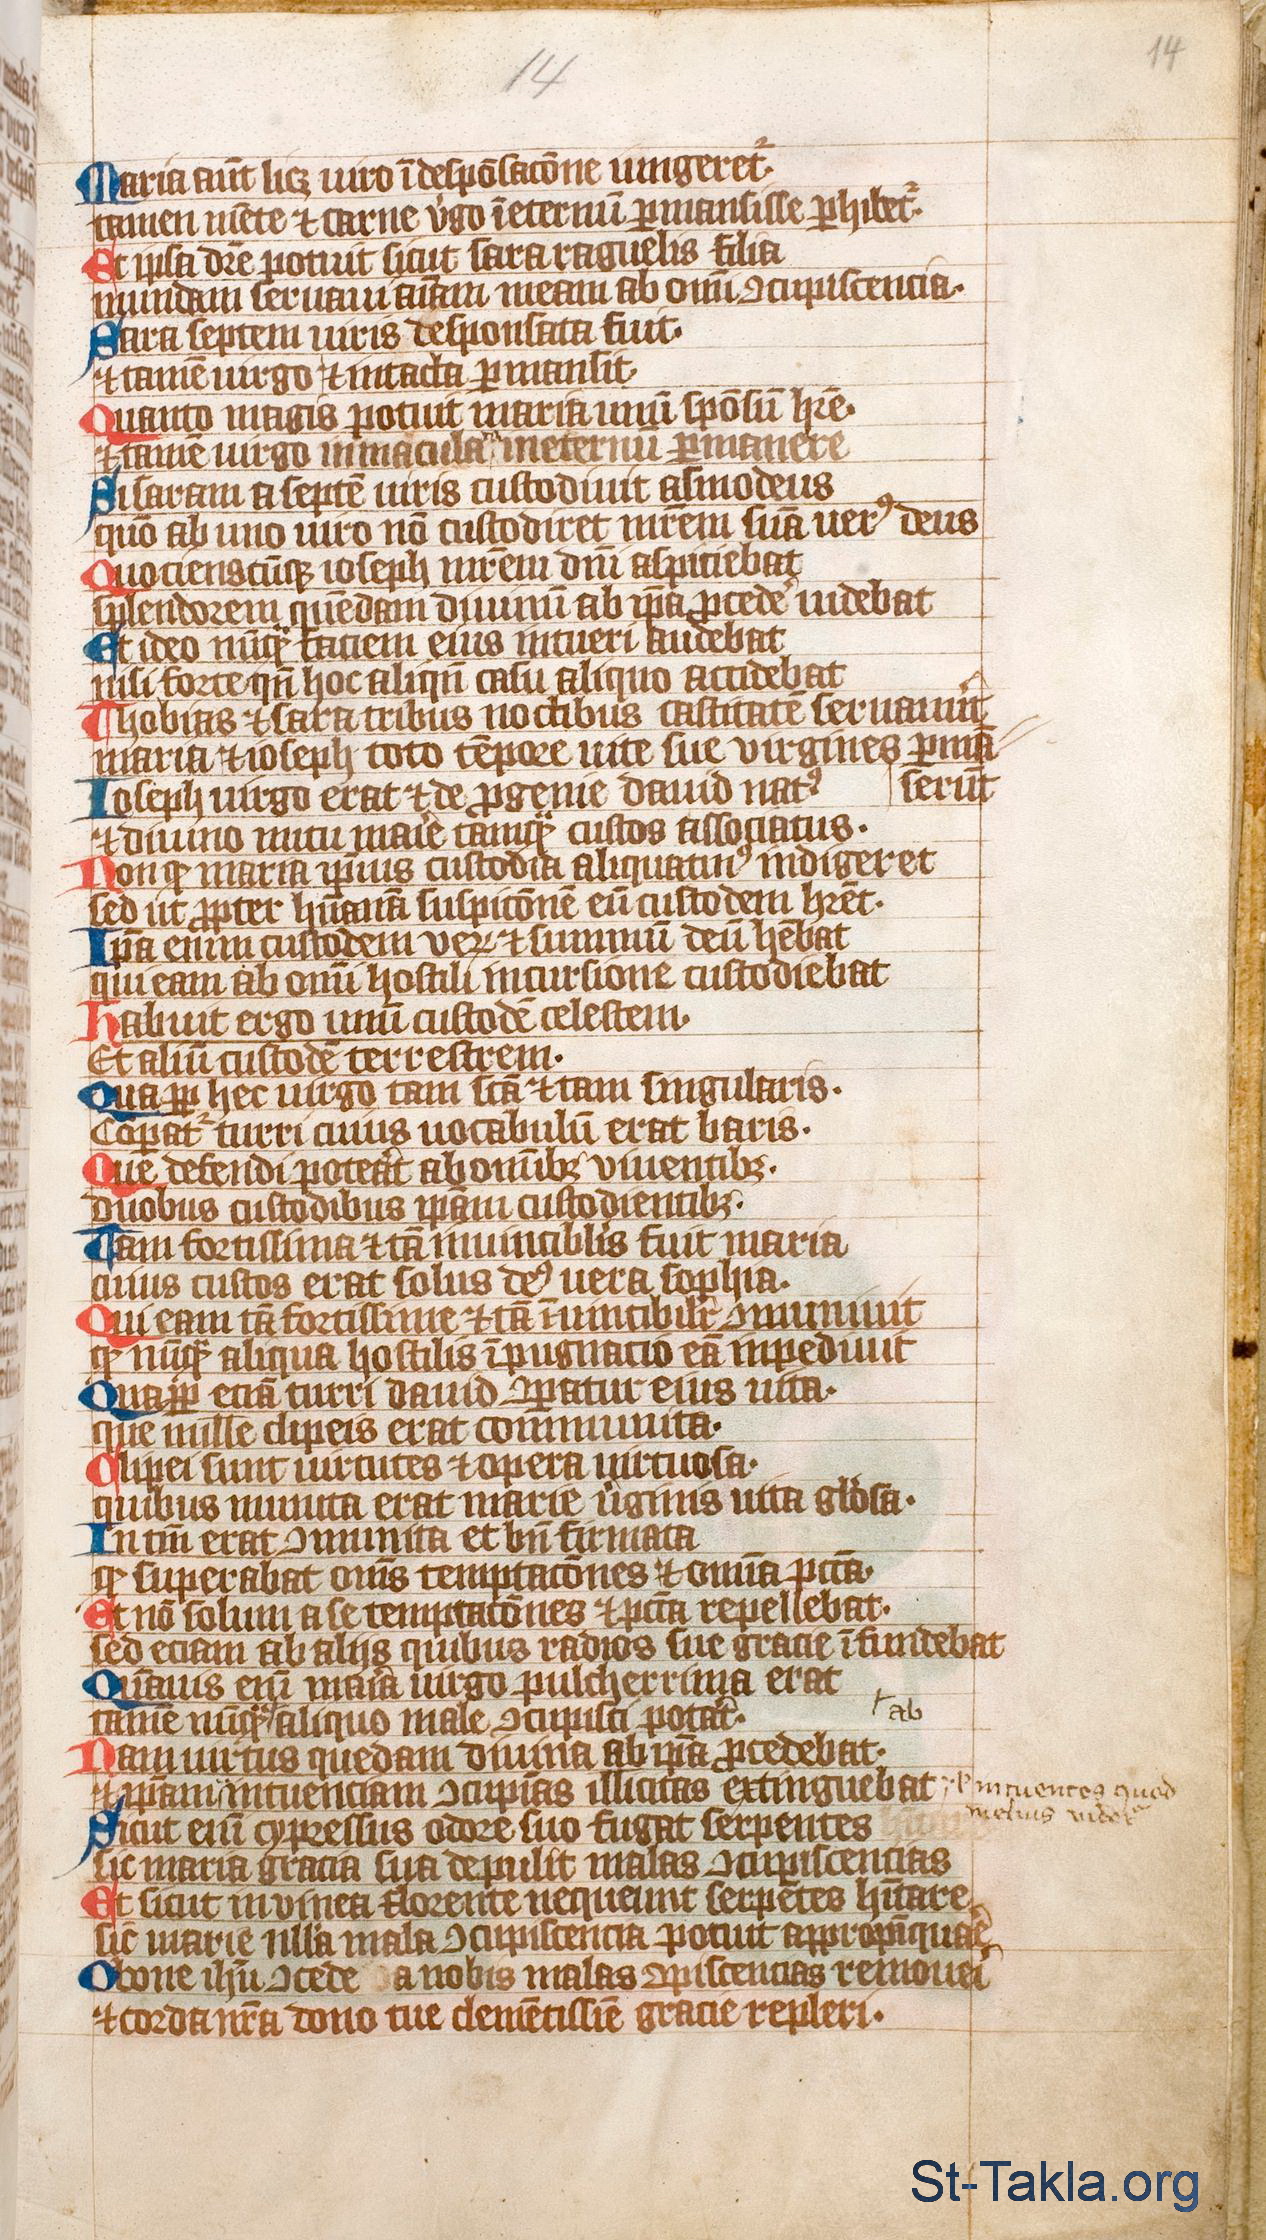 14
14
Maria aūt licꝫ viro ī desponsacōne iungeret᷑.
tamen mēte ⁊ carne v̓go īeternū ꝑmansisse ꝑhibet᷑.
Et ipsa dr̄e potuit sicut sara raguelis filia
mundam seruaui aīam meam ab om̄i ꝯcupiscencia.
Sara septem uiris desponsata fuit.
⁊ tamē uirgo ⁊ intacta ꝑmansit.
Quanto magis potuit maria unū spōsū hr̄e.
⁊ tamē uirgo inmacula ineternū ꝑmanere
Si saram a septē uiris custodiuit asmodeus
quō ab uno uiro nō custodiret mr̄em suā uerꝰ deus
Quocienscūqꝫ ioseph mr̄em dn̄i aspiciebat
splendorem quēdam diuinū ab ip̄a ꝓcede᷑ uidebat
Et ideo nūqͣ faciem eius intueri audebat
nisi forte qn̄ hoc aliqn̄ casu aliquo accidebat
Thobias ⁊ sara tribus noctibus castitatē seruauūt
maria ⁊ ioseph toto tēpore uite sue virgines ꝑmā
serūt
Ioseph uirgo erat ⁊ de ꝓgenie dauid natꝰ
⁊ diuino nutu mar̄ie tamqͣ custos associatus.
Non qꝫ maria ip̄ius custodia aliquatinꝰ indigeret
sed ut ꝓpter hūanā suspicōnē eū custodem hr̄et.
Ip̄a enim custodem verū ⁊ summū deū hēbat
qui eam ab om̄i hostili incursione custodiebat
Habuit ergo unū custodē celestem.
Et aliū custodē terrestrem.
Quaꝓꝑ hec uirgo tam sc̄a ⁊ tam singularis.
Cōꝑat᷑ turri cuius uocabulū erat baris.
Que defendi poterat ab omībꝫ viuentibꝫ.
duobus custodibus ip̄am custodientibꝫ.
Tam fortissima ⁊ tā inuincibilis fuit maria
cuius custos erat solus deꝰ uera sophia.
Qui eam tā fortissime ⁊ tā īuincibilit᷑ ꝯmuniuit
qꝫ nūqͣ aliqua hostilis īpugnacio eā inpediuit
Quaꝓꝑ eciā turri dauid ꝯꝑatur eius uita.
que mille clipeis erat communita.
Clipei sunt uirtutes ⁊ opera uirtuosa.
quibus munita erat marie v̓ginis uita glōsa.
In tm̄ erat ꝯmunita et bn̄ firmata
qꝫ superabat om̄s temptacōnes ⁊ omīa pctā.
Et nō solum a se temptacōnes ⁊ pctā repellebat.
sed eciam ab aliis quibus radios sue gracie īfundebat
Quāuis enī maria uirgo pulcherrima erat
tamē nūqͣ aliquo male ꝯcupisci potat᷑.
ab
Nam uirtus quedam diuina ab ip̄a ꝓcedebat.
⁊ ip̄am intuenciam ꝯcupīas illicitas extinguebat
intuentes quod
melius
Sicut enī cypressus odore suo fugat serpentes
sic maria gracia sua depulit malas ꝯcupiscencias
Et sicut in vinea florente nequeunt serpētes hītare
sic marie nlla mala ꝯcupiscencia potuit appropīquare
O bone ih̄u ꝯcede a nobis malas ꝯpiscencias remoueri
⁊ corda nr̄a dono tue clemētissīe gracie repleri.
St-Takla.org